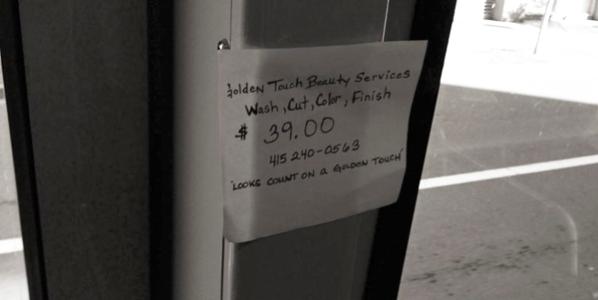 Golden Touch Beauty Services
Wash, Cut, Color, Finish
$ 39.00
415 240-0563
"LOOKS COUNT ON a GOLDEN TOUCH"